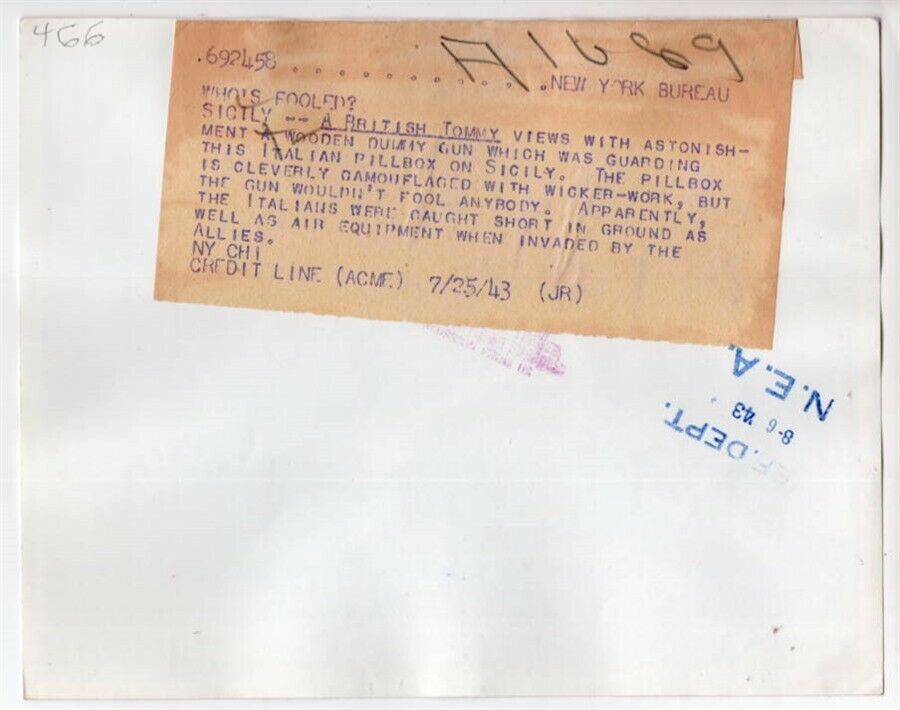 466
A1689
.692458 . . . . . . . . . . . .NEW YORK BUREAU
WHO'S FOOLED?
SICILY -- A BRITISH TOMMY VIEWS WITH ASTONISH-
MENT A WOODEN DUMMY GUN WHICH WAS GUARDING
THIS ITALIAN PILLBOX ON SICILY. THE PILLBOX
IS CLEVERLY CAMOUFLAGED WITH WICKER-WORK, BUT
THE GUN WOULDN'T FOOL ANYBODY. APPARENTLY,
THE ITALIANS WERE CAUGHT SHORT IN GROUND AS
WELL AS AIR EQUIPMENT WHEN INVADED BY THE
ALLIES.
NY CHI
CREDIT LINE (ACME) 7/25/43 (JR)
N.E.A.
8-6 '43
DEPT.